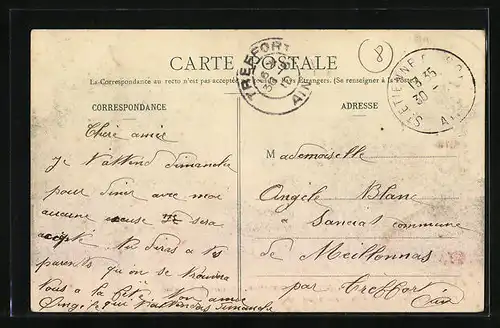 CARTE POSTALE
La Correspondance au recto n'est pas acceptée par tous les pays Etrangers. (Se renseigner à la Poste)
TREFFORT
AIN
ST ETIENNE
13 35
30
8
CORRESPONDANCE
ADRESSE
Chère amie
Je t'attend dimanche
pour diner avec moi
aucune excuse ne sera
acepté Tu diras a tes
parents qu'on se trouvera
tous a la fête Ton amie
Angèle qui t'attend dimanche
Mademoiselle
Angèle Blanc
a Sanciat commune
de Meillonnas
par Treffort
Ain